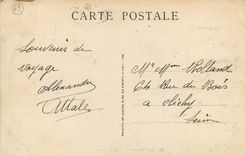 CARTE POSTALE
Souvenir de
voyage
Alexandre
Mr Mme Rolland
Rue du Bois
a Clichy
Seine